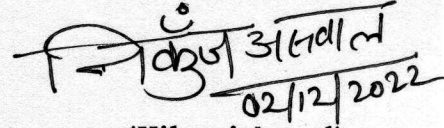 निकुँज असवाल
02/12/2022